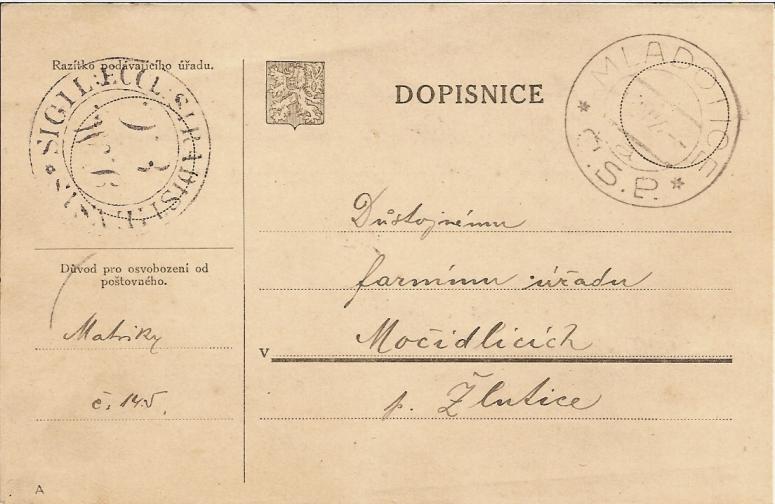 Razítko podávajícího úřadu.
SIGIL. ECCL. STRADIST
DOPISNICE
MLADOTICE
Č.S.P.
Důstojnému
farnímu úřadu
Důvod pro osvobození od
poštovného.
Matriky
v Močidlicích
č. 145,
p. Žlutice
A